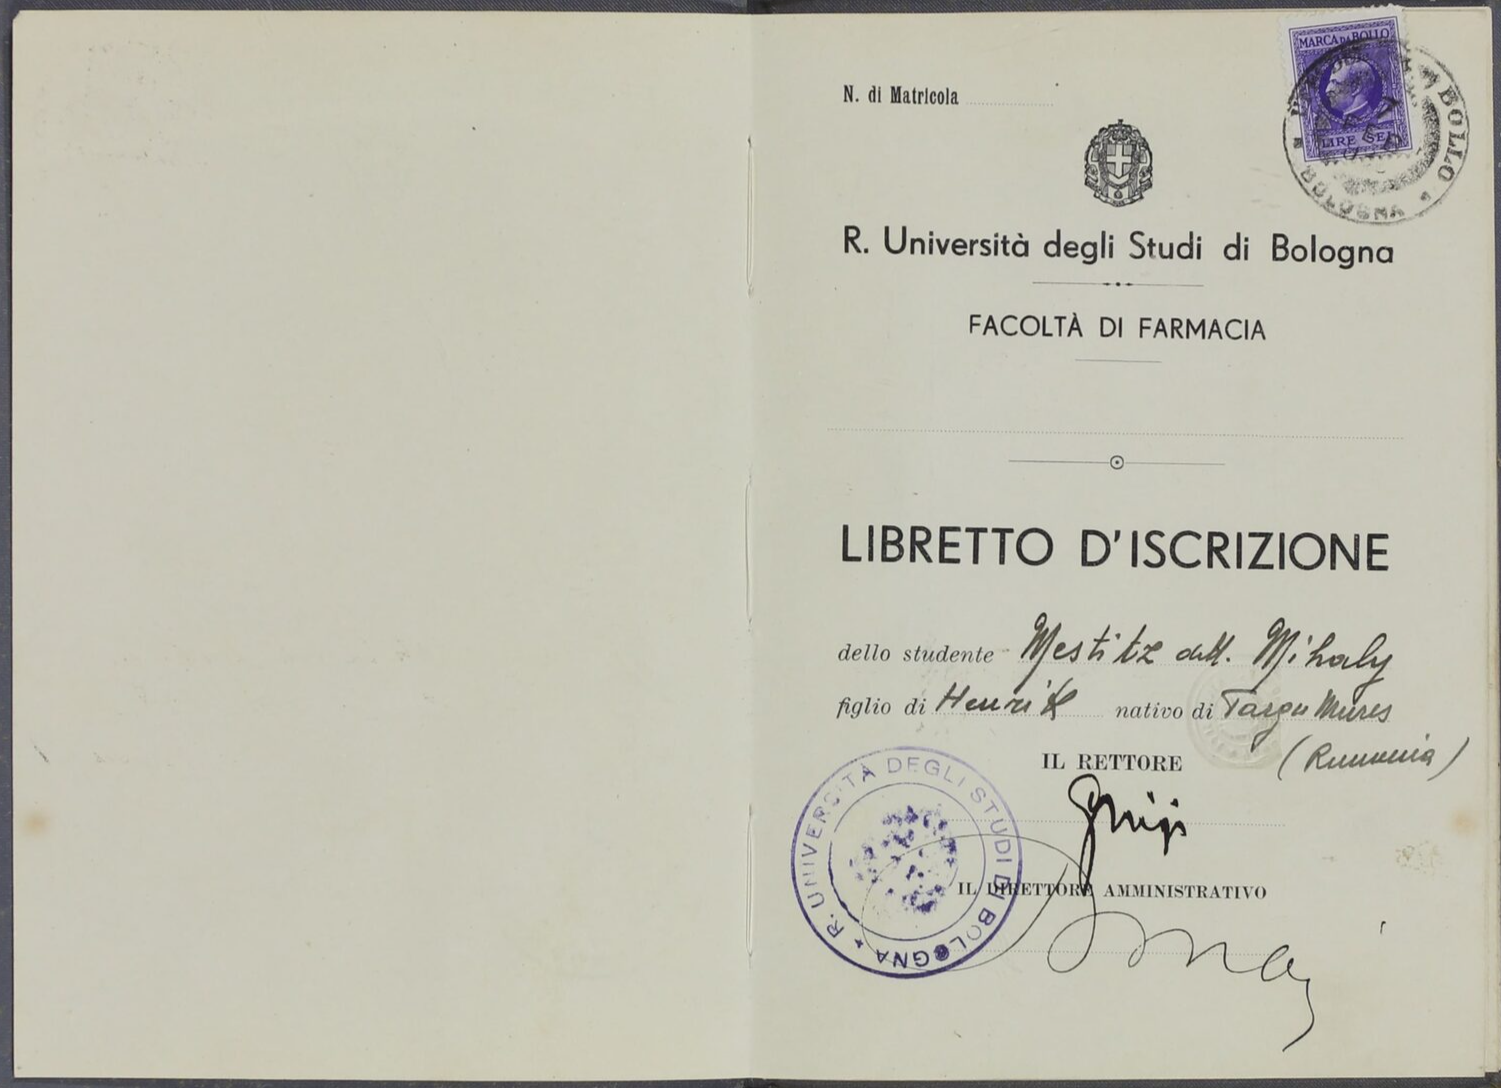 N. di Matricola
MARCA DA BOLLO
LIRE SEI
BOLLO
BOLOGNA
R. Università degli Studi di Bologna
FACOLTÀ DI FARMACIA
LIBRETTO D'ISCRIZIONE
dello studente Mestitz dott. Mihaly
figlio di Henrik nativo di Targu Mures
(Rumenia)
IL RETTORE
Ghigi
R. UNIVERSITÀ DEGLI STUDI DI BOLOGNA
IL DIRETTORE AMMINISTRATIVO